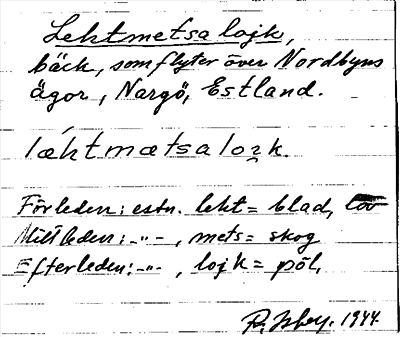 Lehtmetsa lojk,
bäck, som flyter över Nordbyns
ägor, Nargö, Estland.
lǽhtmætsaloi̯k.
Förleden: estn. leht = blad,
Mittleden: -"-, mets = skog
Efterleden: -"-, lojk = pöl,
1944.